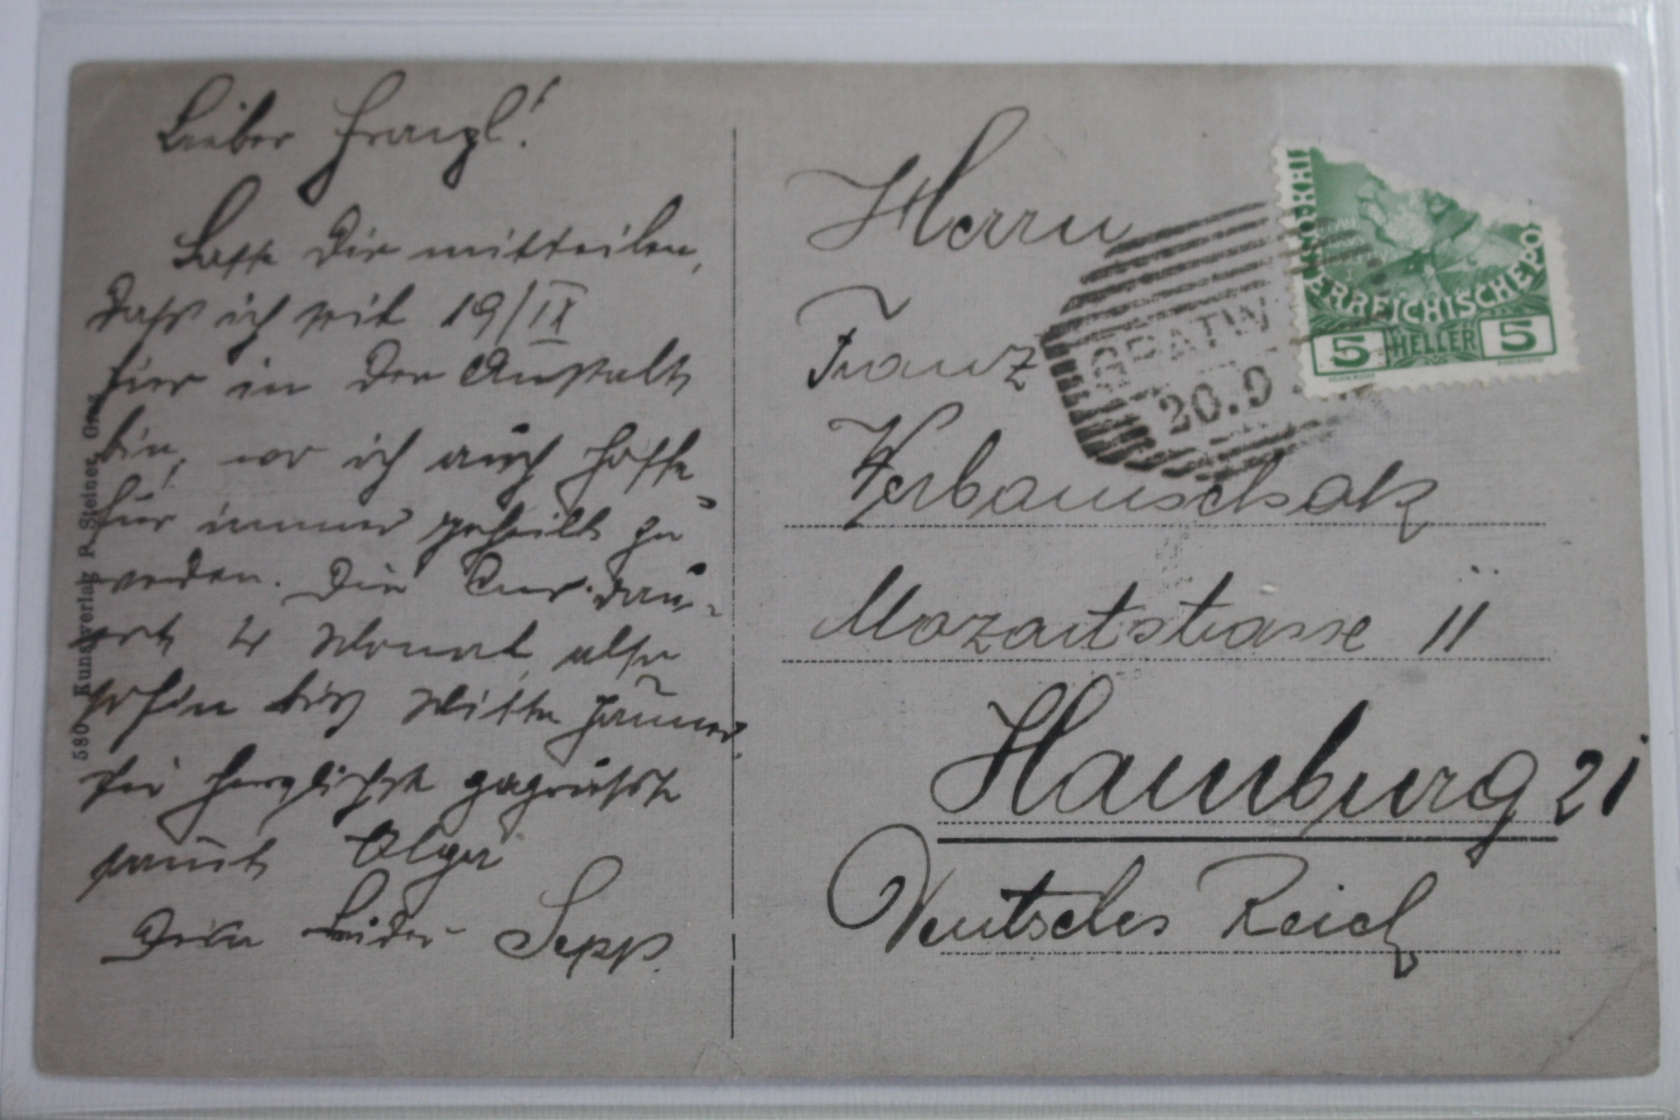 Lieber Franzl!
Lasse Dir mitteilen,
daß ich seit 19/IX
hier in der Anstalt
bin, wo ich auch hoffe
für immer geheilt zu
werden. Die Cur dau-
ert 4 Monat also
bis Mitte Jänner.
Sei herzlichst gegrüsst
samt Olga
Dein Bruder Sepp.
580 Kunstverlag P. Steiner, Graz
Herrn
Franz
Verbamschak
Mozartstrasse 11
Hamburg 21
Deutsches Reich
GRATW
20.9
ERREICHISCHE PO
5 HELLER 5